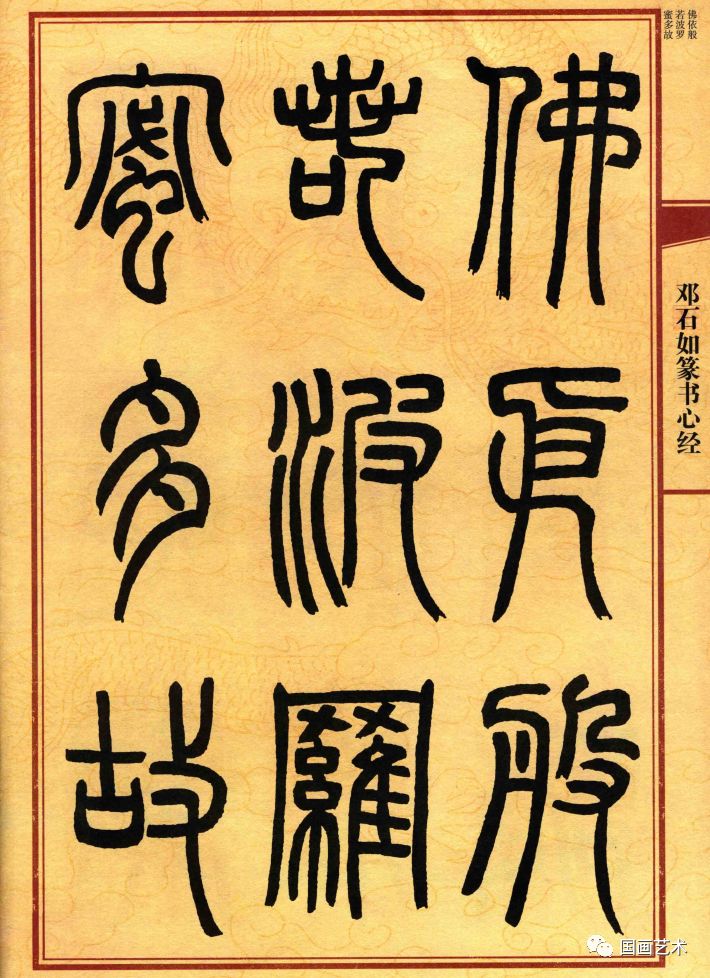 佛依般
若波罗
蜜多故
佛依般
若波羅
蜜多故
邓石如篆书心经
国画艺术